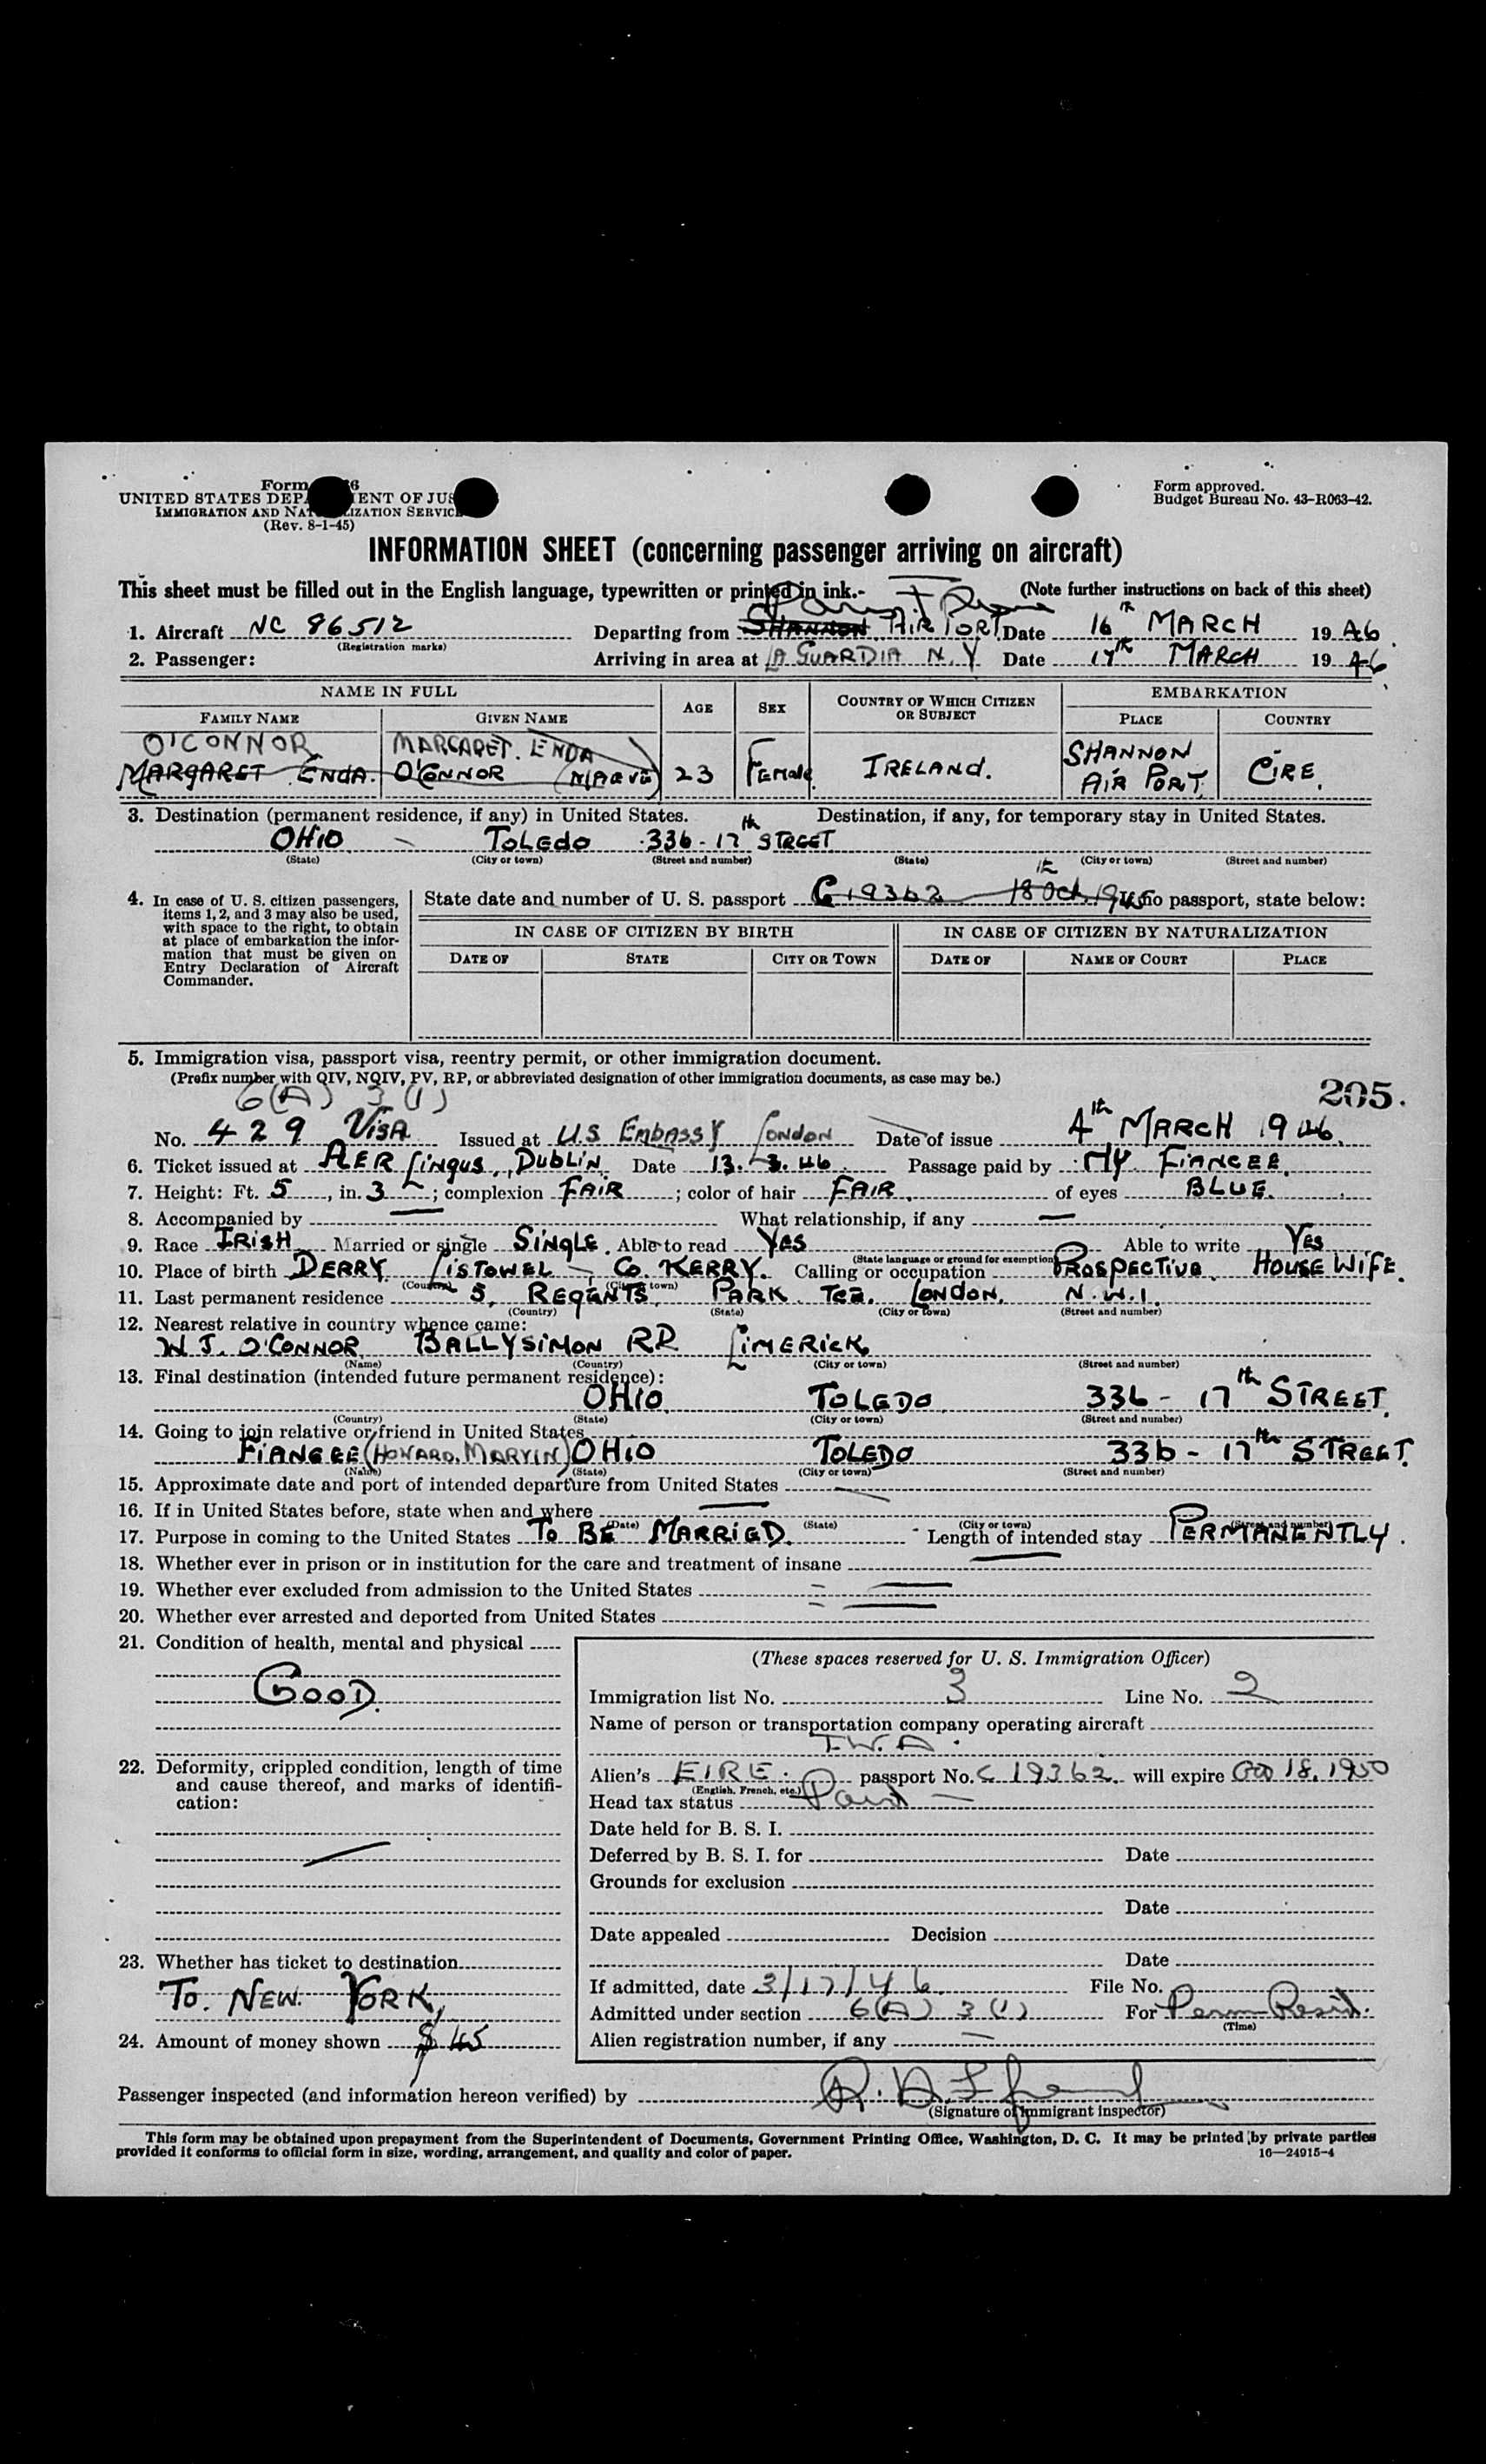 Form
UNITED STATES DEPARTMENT OF JUSTICE
IMMIGRATION AND NATURALIZATION SERVICE
(Rev. 8-1-45)
Form approved.
Budget Bureau No. 43-R063-42.
INFORMATION SHEET (concerning passenger arriving on aircraft)
This sheet must be filled out in the English language, typewritten or printed in ink.- (Note further instructions on back of this sheet)
Paris France
1. Aircraft NC 86512 Departing from SHANNON AIR PORT Date 16th MARCH 1946
(Registration marks)
2. Passenger: Arriving in area at LA GUARDIA N.Y Date 17th MARCH 1946
NAME IN FULL AGE SEX COUNTRY OF WHICH CITIZEN OR SUBJECT EMBARKATION
FAMILY NAME GIVEN NAME PLACE COUNTRY
O'CONNOR MARGARET. ENDA SHANNON
MARGARET ENDA. O'CONNOR 23 FEMALE IRELAND. AIR PORT. EIRE.
3. Destination (permanent residence, if any) in United States. Destination, if any, for temporary stay in United States.
OHIO - TOLEDO 336-17th STREET
(State) (City or town) (Street and number) (State) (City or town) (Street and number)
4. In case of U. S. citizen passengers, items 1, 2, and 3 may also be used, with space to the right, to obtain at place of embarkation the information that must be given on Entry Declaration of Aircraft Commander.
State date and number of U. S. passport C 19362 18th Oct. 1945 If no passport, state below:
IN CASE OF CITIZEN BY BIRTH IN CASE OF CITIZEN BY NATURALIZATION
DATE OF STATE CITY OR TOWN DATE OF NAME OF COURT PLACE
5. Immigration visa, passport visa, reentry permit, or other immigration document.
(Prefix number with QIV, NQIV, PV, RP, or abbreviated designation of other immigration documents, as case may be.)
205.
6(A) 3(1)
No. 429 VISA Issued at U.S. EMBASSY LONDON Date of issue 4th MARCH 1946.
6. Ticket issued at AER LINGUS, DUBLIN. Date 13.3.46. Passage paid by MY FIANCEE.
7. Height: Ft. 5, in. 3; complexion FAIR; color of hair FAIR. of eyes BLUE.
8. Accompanied by — What relationship, if any —
9. Race IRISH Married or single SINGLE. Able to read YES Able to write YES
(State language or ground for exemption)
10. Place of birth DERRY LISTOWEL - CO. KERRY. Calling or occupation PROSPECTIVE HOUSE WIFE.
(Country) (City or town)
11. Last permanent residence 5, REGENTS PARK TER. LONDON. N.W.1.
(Country) (State) (City or town) (Street and number)
12. Nearest relative in country whence came:
W J. O'CONNOR BALLYSIMON RD LIMERICK
(Name) (Country) (City or town) (Street and number)
13. Final destination (intended future permanent residence):
OHIO TOLEDO 336 - 17th STREET.
(Country) (State) (City or town) (Street and number)
14. Going to join relative or friend in United States
FIANCEE (HOWARD. MARVIN) OHIO TOLEDO 336 - 17th STREET.
(Name) (State) (City or town) (Street and number)
15. Approximate date and port of intended departure from United States —
16. If in United States before, state when and where —
(Date) (State) (City or town) (Street and number)
17. Purpose in coming to the United States TO BE MARRIED. Length of intended stay PERMANENTLY.
18. Whether ever in prison or in institution for the care and treatment of insane —
19. Whether ever excluded from admission to the United States —
20. Whether ever arrested and deported from United States —
21. Condition of health, mental and physical
GOOD.
22. Deformity, crippled condition, length of time and cause thereof, and marks of identification:
—
23. Whether has ticket to destination
TO. NEW. YORK,
24. Amount of money shown $45
(These spaces reserved for U. S. Immigration Officer)
Immigration list No. 3 Line No. 2
Name of person or transportation company operating aircraft
T.W.A.
Alien's EIRE. passport No. C 19362 will expire Oct 18, 1950
(English, French, etc.)
Head tax status Paid —
Date held for B. S. I.
Deferred by B. S. I. for Date
Grounds for exclusion
Date
Date appealed Decision
Date
If admitted, date 3/17/46 File No.
Admitted under section 6(A) 3(1) For Perm Resid.
(Time)
Alien registration number, if any —
Passenger inspected (and information hereon verified) by
(Signature of Immigrant Inspector)
This form may be obtained upon prepayment from the Superintendent of Documents, Government Printing Office, Washington, D. C. It may be printed by private parties
provided it conforms to official form in size, wording, arrangement, and quality and color of paper. 16—24915-4